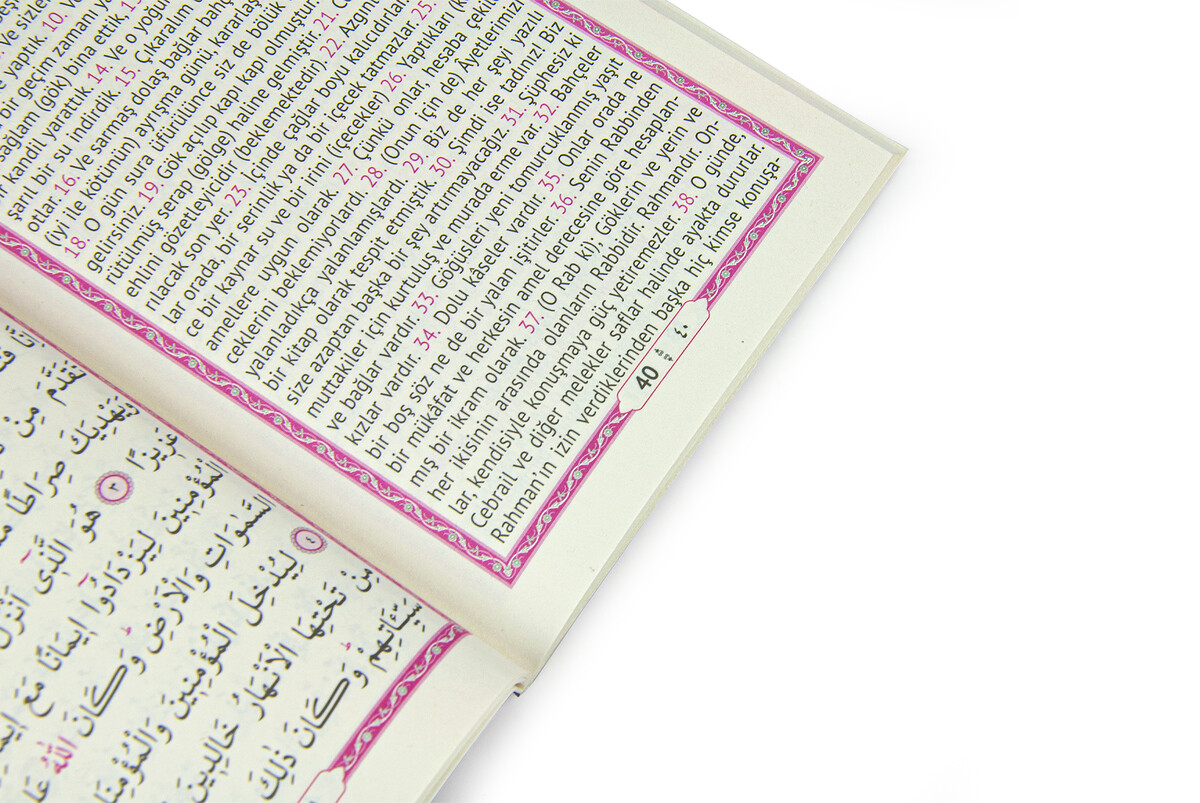 ve sizler
yaptık. 10. Ve
bir geçim zamanı
sağlam (gök) bina ettik.
kandil yarattık. 14. Ve o
şarıl bir su indirdik. 15. Çıkaralım
otlar. 16. Ve sarmaş dolaş bağlar
(iyi ile kötünün) ayrışma günü,
18. O gün sura üfürülünce siz de bölük
gelirsiniz. 19. Gök açılıp kapı kapı olmuştur.
rütülmüş serap (gölge) haline gelmiştir. 21.
ehlini gözetleyicidir (beklemektedir) 22.
rılacak son yer. 23. İçinde çağlar boyu kalıcıdırlar
lar orada, bir serinlik ya da bir içecek tatmazlar. 25.
ce bir kaynar su ve bir irini (çecekler) 26. Yaptıkları
amellere uygun olarak. 27. Çünkü onlar hesaba çekil
ceklerini beklemiyorlardı. 28. (Onun için de) Âyetlerimizi
yalanladıkça yalanlamışlardı. 29. Biz de her şeyi yazılı
bir kitap olarak tespit etmiştik. 30. Şimdi ise tadınız! Biz
size azaptan başka bir şey artırmayacağız. 31. Şüphesiz ki
muttakiler için kurtuluş ve murada erme var. 32. Bahçeler
ve bağlar vardır. 33. Göğüsleri yeni tomurcuklanmış yaşıt
kızlar vardır. 34. Dolu kâseler vardır. 35. Onlar orada ne
bir boş söz ne de bir yalan işitirler. 36. Senin Rabbinden
bir mükâfat ve herkesin amel derecesine göre hesaplan-
mış bir ikram olarak. 37. (O Rab ki), Göklerin ve yerin ve
her ikisinin arasında olanların Rabbidir. Rahmandır. On-
lar, kendisiyle konuşmaya güç yetiremezler. 38. O günde,
Cebrail ve diğer melekler saflar halinde ayakta dururlar.
Rahman’ın izin verdiklerinden başka hiç kimse konuşa-
40 ٤٠
تَقَدَّمَ مِنْ
وَيَهْدِيَكَ صِرَاطًا
عَزِيزًا ٣ هُوَ الَّذِى اَنْزَلَ
الْمُؤْمِنِينَ لِيَزْدَادُوا اِيمَانًا مَعَ
السَّمٰوَاتِ وَالْاَرْضِ وَكَانَ اللّٰهُ
٤ لِيُدْخِلَ الْمُؤْمِنِينَ وَالْمُؤْمِنَاتِ
مِنْ تَحْتِهَا الْاَنْهَارُ خَالِدِينَ
سَيِّـَٔاتِهِمْ وَكَانَ ذٰلِكَ